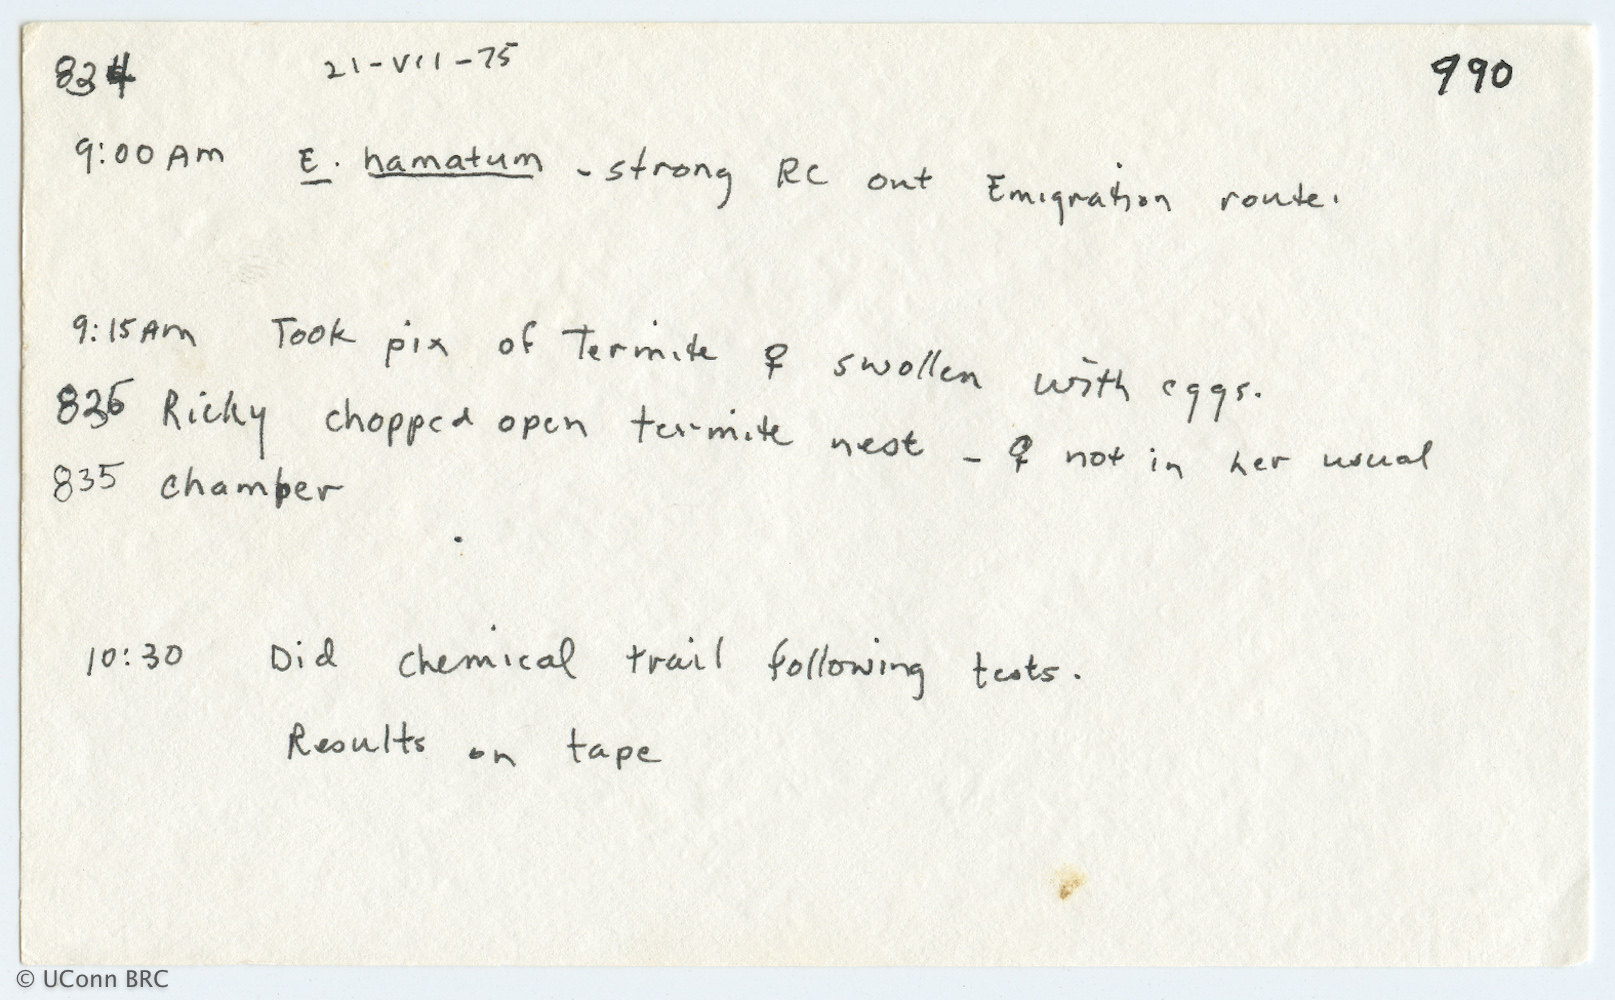 834 21-VII-75 990
9:00 Am E. hamatum - strong RC out Emigration route.
9:15 Am Took pix of Termite ♀ swollen with eggs.
836 Ricky chopped open termite nest - ♀ not in her usual
835 chamber
10:30 Did chemical trail following tests.
Results on tape
© UConn BRC